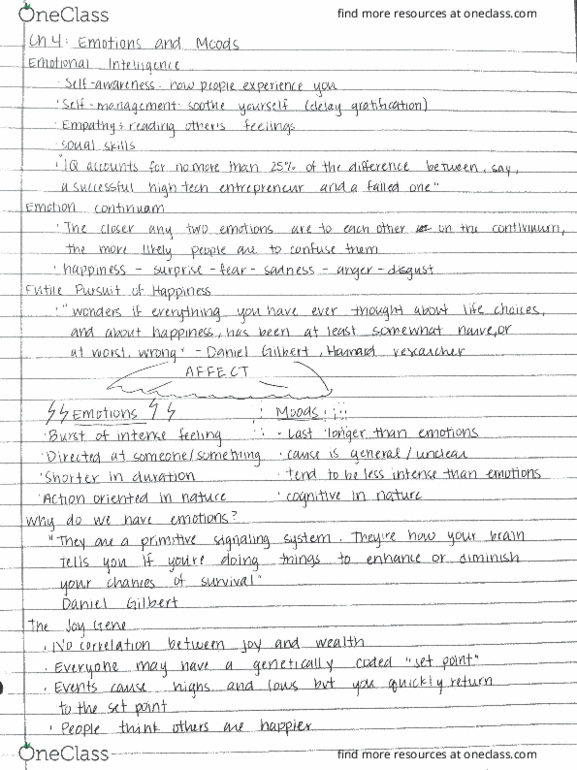 OneClass
find more resources at oneclass.com
Ch 4: Emotions and Moods
Emotional Intelligence
· Self-awareness - how people experience you
· Self-management - soothe yourself (delay gratification)
· Empathy: reading other's feelings
· social skills
· "IQ accounts for no more than 25% of the difference between, say,
a successful high tech entrepreneur and a failed one"
Emotion continuum
· The closer any two emotions are to each other on the continuum,
the more likely people are to confuse them
· happiness - surprise - fear - sadness - anger - disgust
Futile Pursuit of Happiness
· "wonders if everything you have ever thought about life choices,
and about happiness, has been at least somewhat naive, or
at worst, wrong" - Daniel Gilbert, Harvard researcher
AFFECT
Emotions
· Burst of intense feeling
· Directed at someone/something
· Shorter in duration
· Action oriented in nature
Moods
- Last longer than emotions
· cause is general / unclear
· tend to be less intense than emotions
· cognitive in nature
Why do we have emotions?
"They are a primitive signaling system. They're how your brain
tells you if you're doing things to enhance or diminish
your chances of survival"
Daniel Gilbert
The Joy Gene
· No correlation between joy and wealth
· Everyone may have a genetically coded "set point"
· Events cause highs and lows but you quickly return
to the set point
· People think others are happier
OneClass
find more resources at oneclass.com